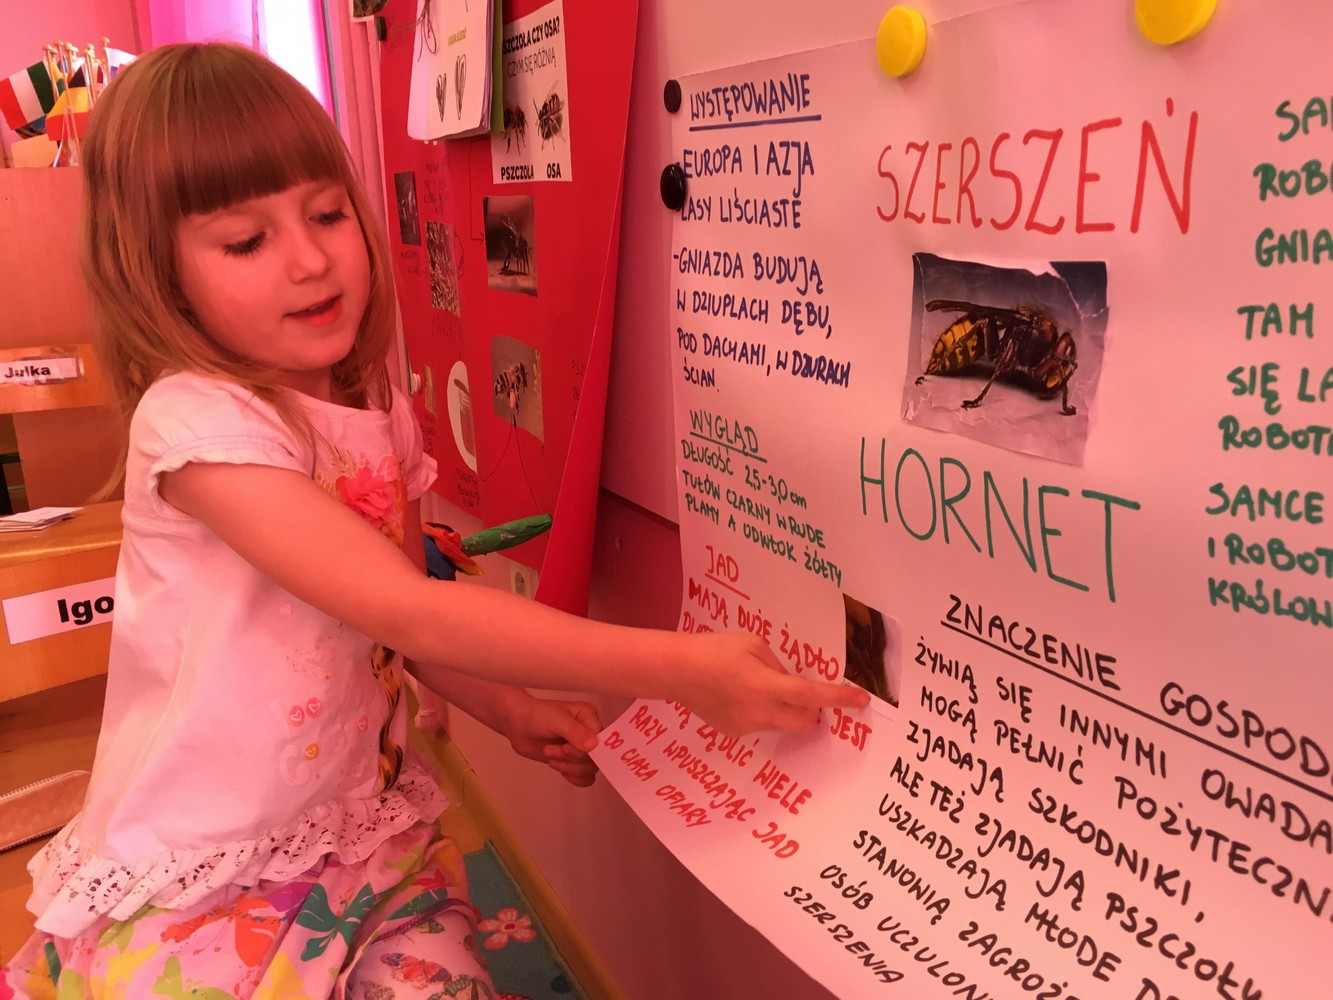 PSZCZOŁA CZY OSA?
CZYM SIĘ RÓŻNIĄ
PSZCZOŁA OSA
Julka
WYSTĘPOWANIE
EUROPA I AZJA
LASY LIŚCIASTE
-GNIAZDA BUDUJĄ
W DZIUPLACH DĘBU,
POD DACHAMI, W DZIURACH
ŚCIAN.
WYGLĄD
DŁUGOŚĆ 2,5-3,0 cm
TUŁÓW CZARNY W RUDE
PLAMY A ODWŁOK ŻÓŁTY
JAD
MAJĄ DUŻE ŻĄDŁO
JEST
ŻĄDLIĆ WIELE
RAZY WPUSZCZAJĄC JAD
DO CIAŁA OFIARY
SZERSZEŃ
HORNET
ZNACZENIE GOSPOD
ŻYWIĄ SIĘ INNYMI OWADA
MOGĄ PEŁNIĆ POŻYTECZN
ZJADAJĄ SZKODNIKI,
ALE TEŻ ZJADAJĄ PSZCZOŁY
USZKADZAJĄ MŁODE
STANOWIĄ ZAGROŻ
OSÓB UCZULON
SZERSZENIA
SA
ROB
GNIA
TAM
SIĘ LA
ROBOT
SAMCE
I ROBOT
KRÓLOW
Igo